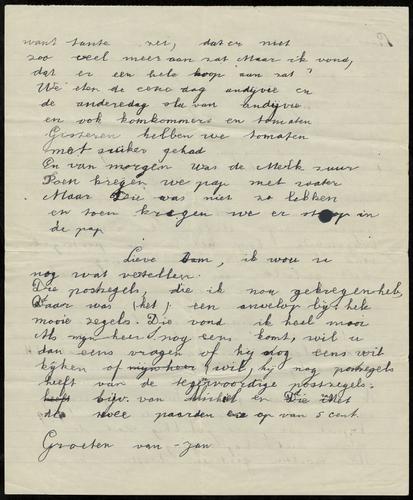 want tante zei, dat er niet
zoo veel meer aan zat Maar ik vond,
dat er een hele hoop aan zat
We eten de eene dag andijvie en
de anderedag sla van andijvie
en ook komkommers en tomaten
Gisteren hebben we tomaten
met suiker gehad
En van morgen was de Melk zuur
Toen kregen we pap met water
Maar Die was niet zo lekker
en toen kregen we er stroop in
de pap
Lieve Oom, ik wou u
nog wat vertellen.
Die postzegels, die ik nou gekregen heb,
Daar was (het) een envelop bij hele
mooie zegels. Die vond ik heel mooi
Als mijnheer nog eens komt, wil u
dan eens vragen of hij nog eens wil
kijken of mijnheer wil, hij nog postzegels
heeft van de tegenvoordige postzegels.
heeft bijv. van Michiel en Die met
de twee paarden er op van 5 cent.
Groeten van Jan